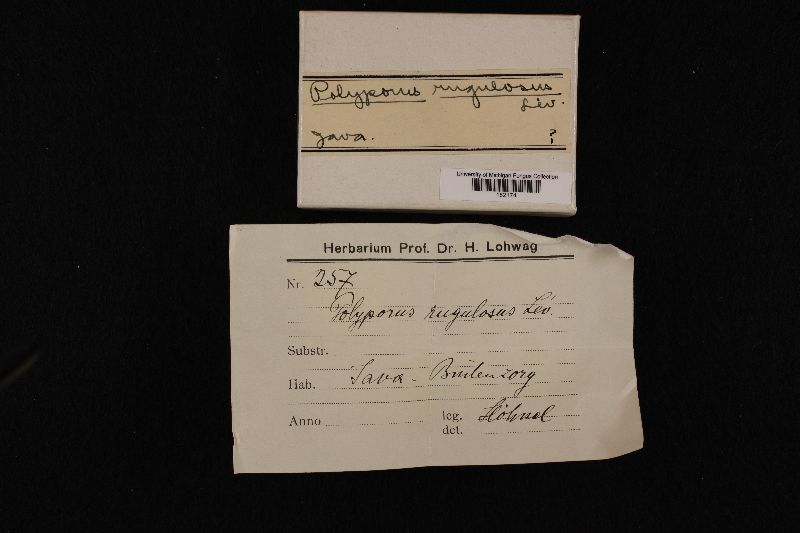 Polyporus rugulosus
Lév.
Java. ?
University of Michigan Fungus Collection
152174
Herbarium Prof. Dr. H. Lohwag
Nr. 257
Polyporus rugulosus Lév.
Substr.
Hab. Java - Buitenzorg
Anno leg. Höhnel
det.